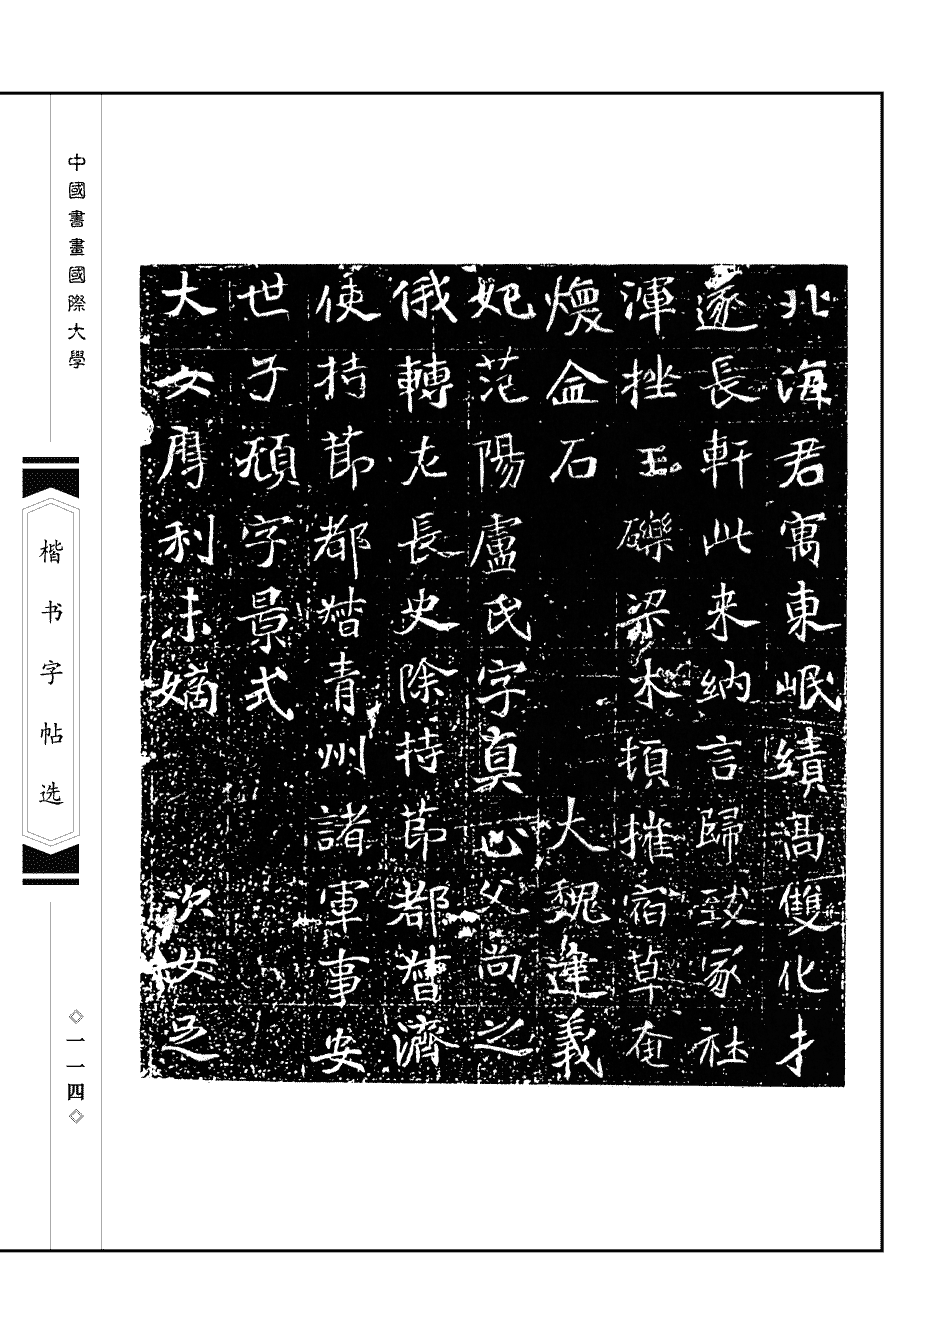 北海君寓東岷績高雙化才
邃長軒此来納言歸致家社
渾挫玉礫梁木頓摧宿草奄
煥金石 大魏建義
妃范陽盧氏字真心父尚之
俄轉左長史除持節都督濟
使持節都督青州諸軍事安
世子頑字景式
大女摩利未嫡 次女足
中國書畫國際大學
楷书字帖选
一一四